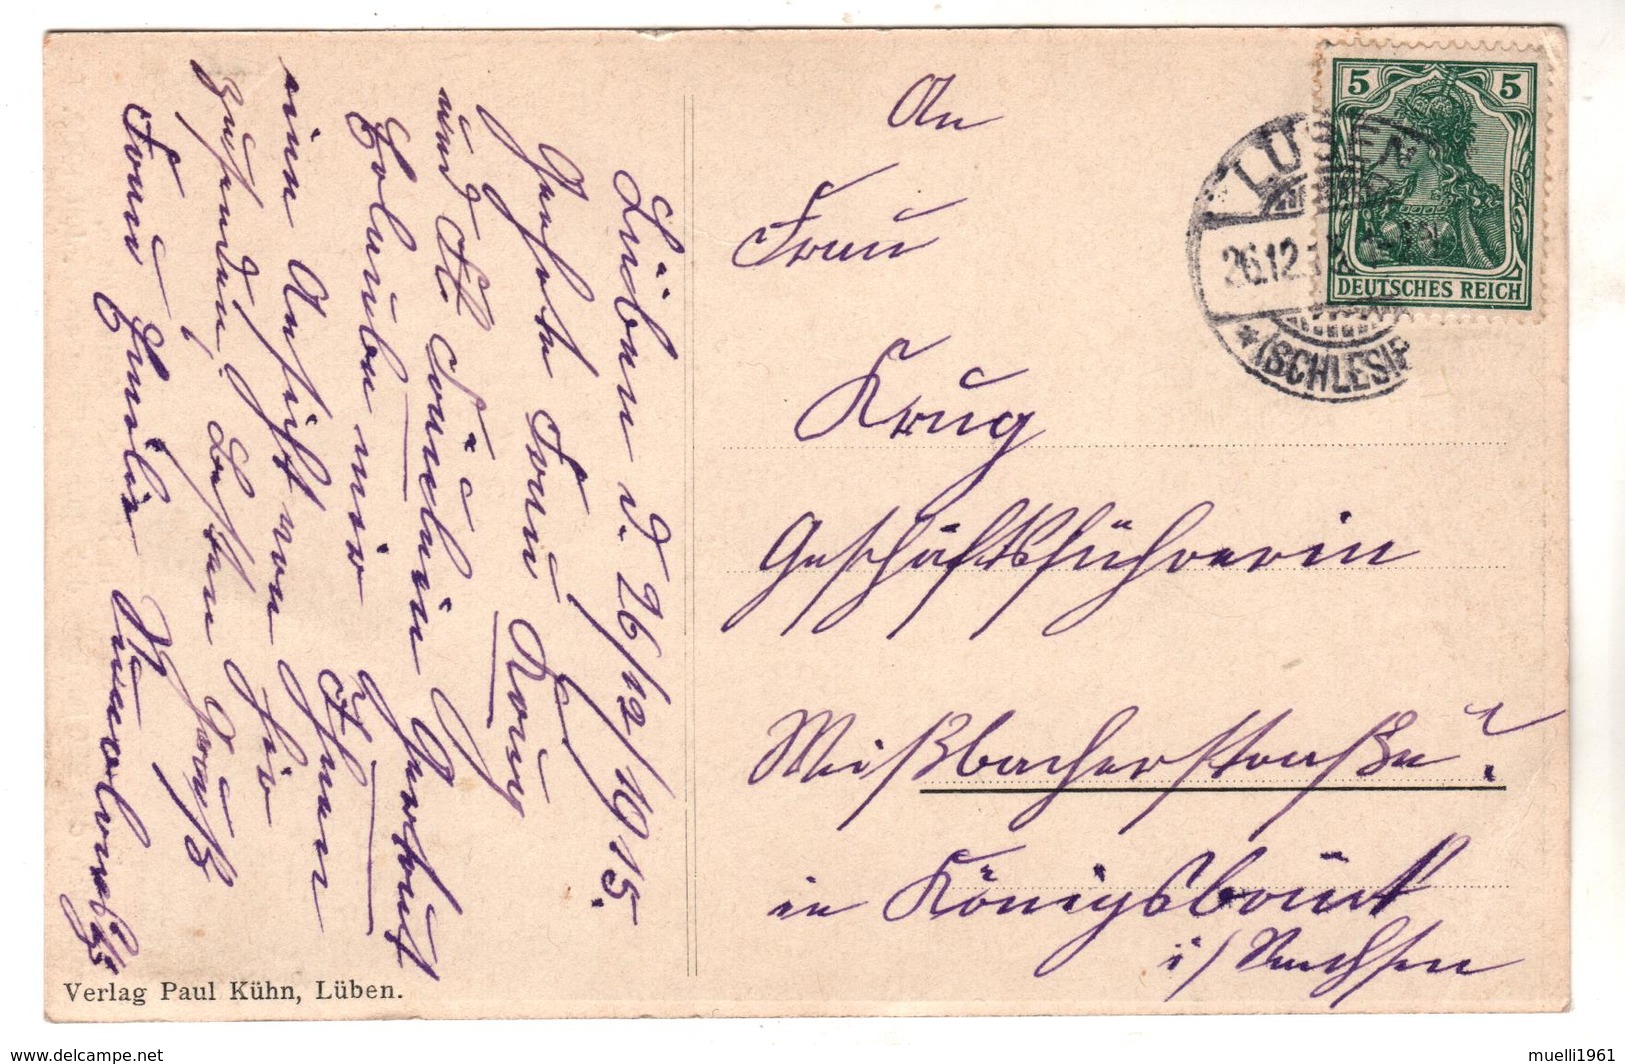 Lüben d. 26/12/1915.
Geehrte Frau Krug
und Frl. Gertrud
Erlaube mir Ihnen
eine Ansicht von hier
zusenden. Besten Gruß
Frau Emilie
An
Frau
Krug
Geschäftsführerin
Weißbacherstraße
in Königsbrück
i/Sachsen
5 5
DEUTSCHES REICH
LÜBEN
26.12.
* (SCHLESIE
Verlag Paul Kühn, Lüben.
delcampe.net
muelli1961